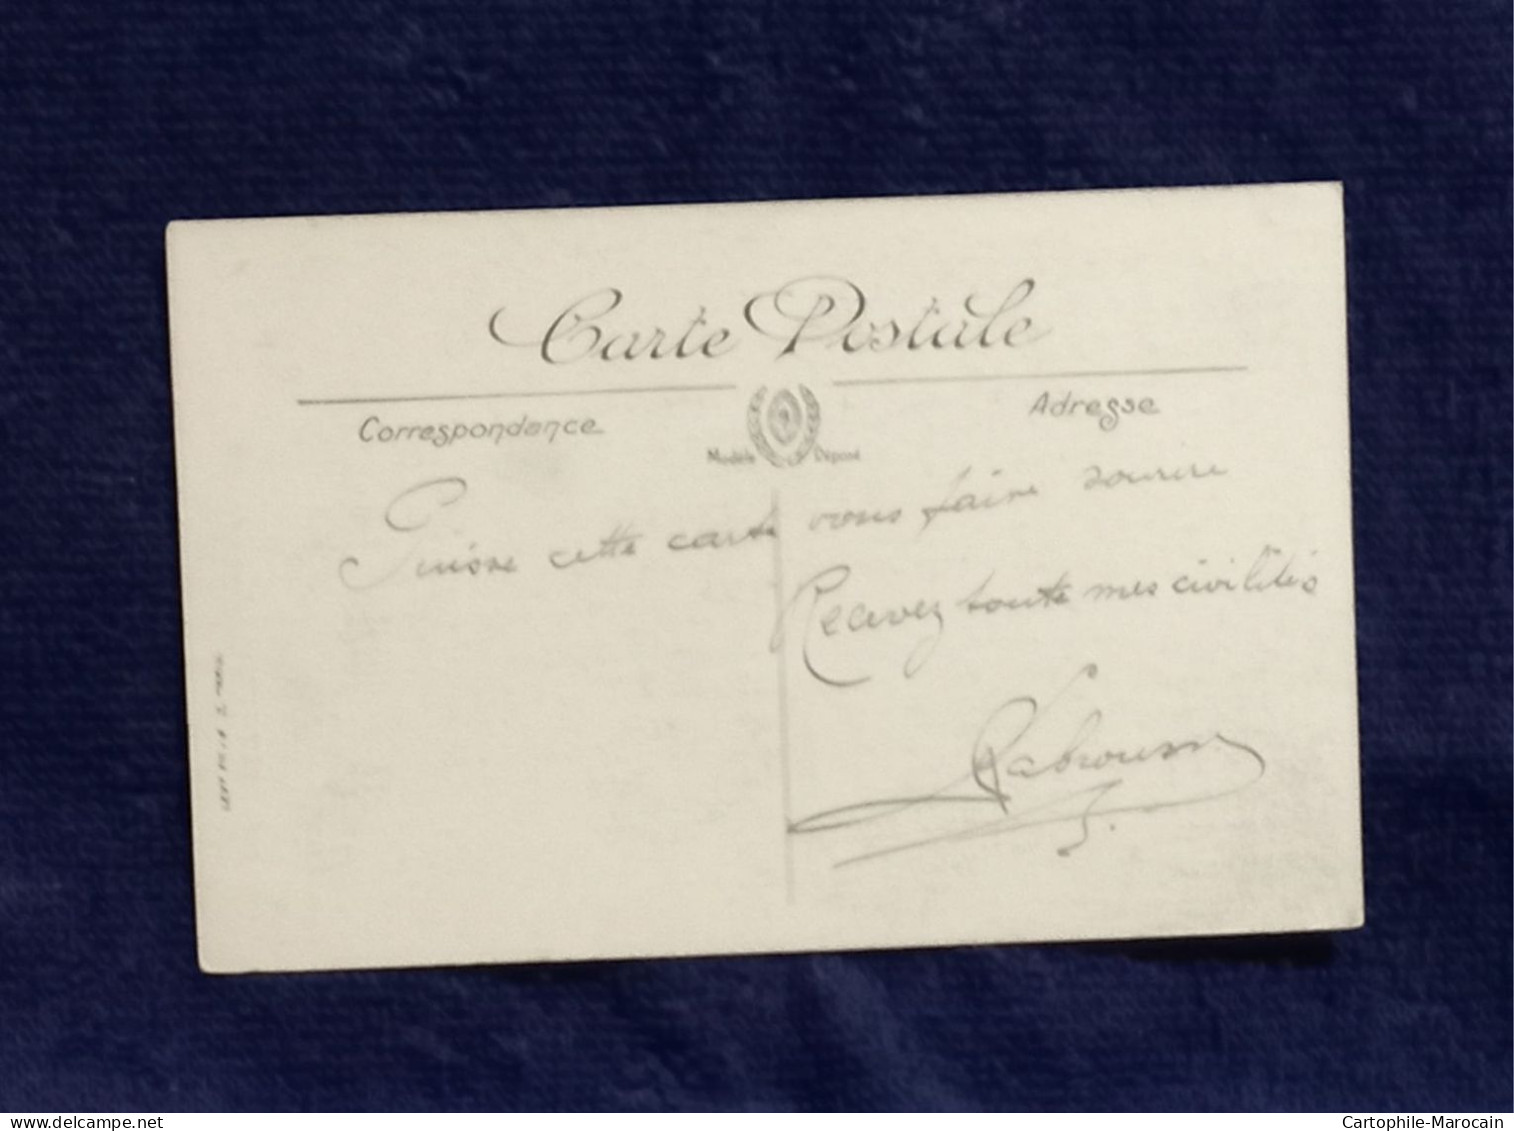 Carte Postale
Correspondance
Adresse
Modèle Déposé
Puisse cette carte vous faire sourire
Recevez toute mes civilités
Labrousse
www.delcampe.net
Cartophile-Marocain